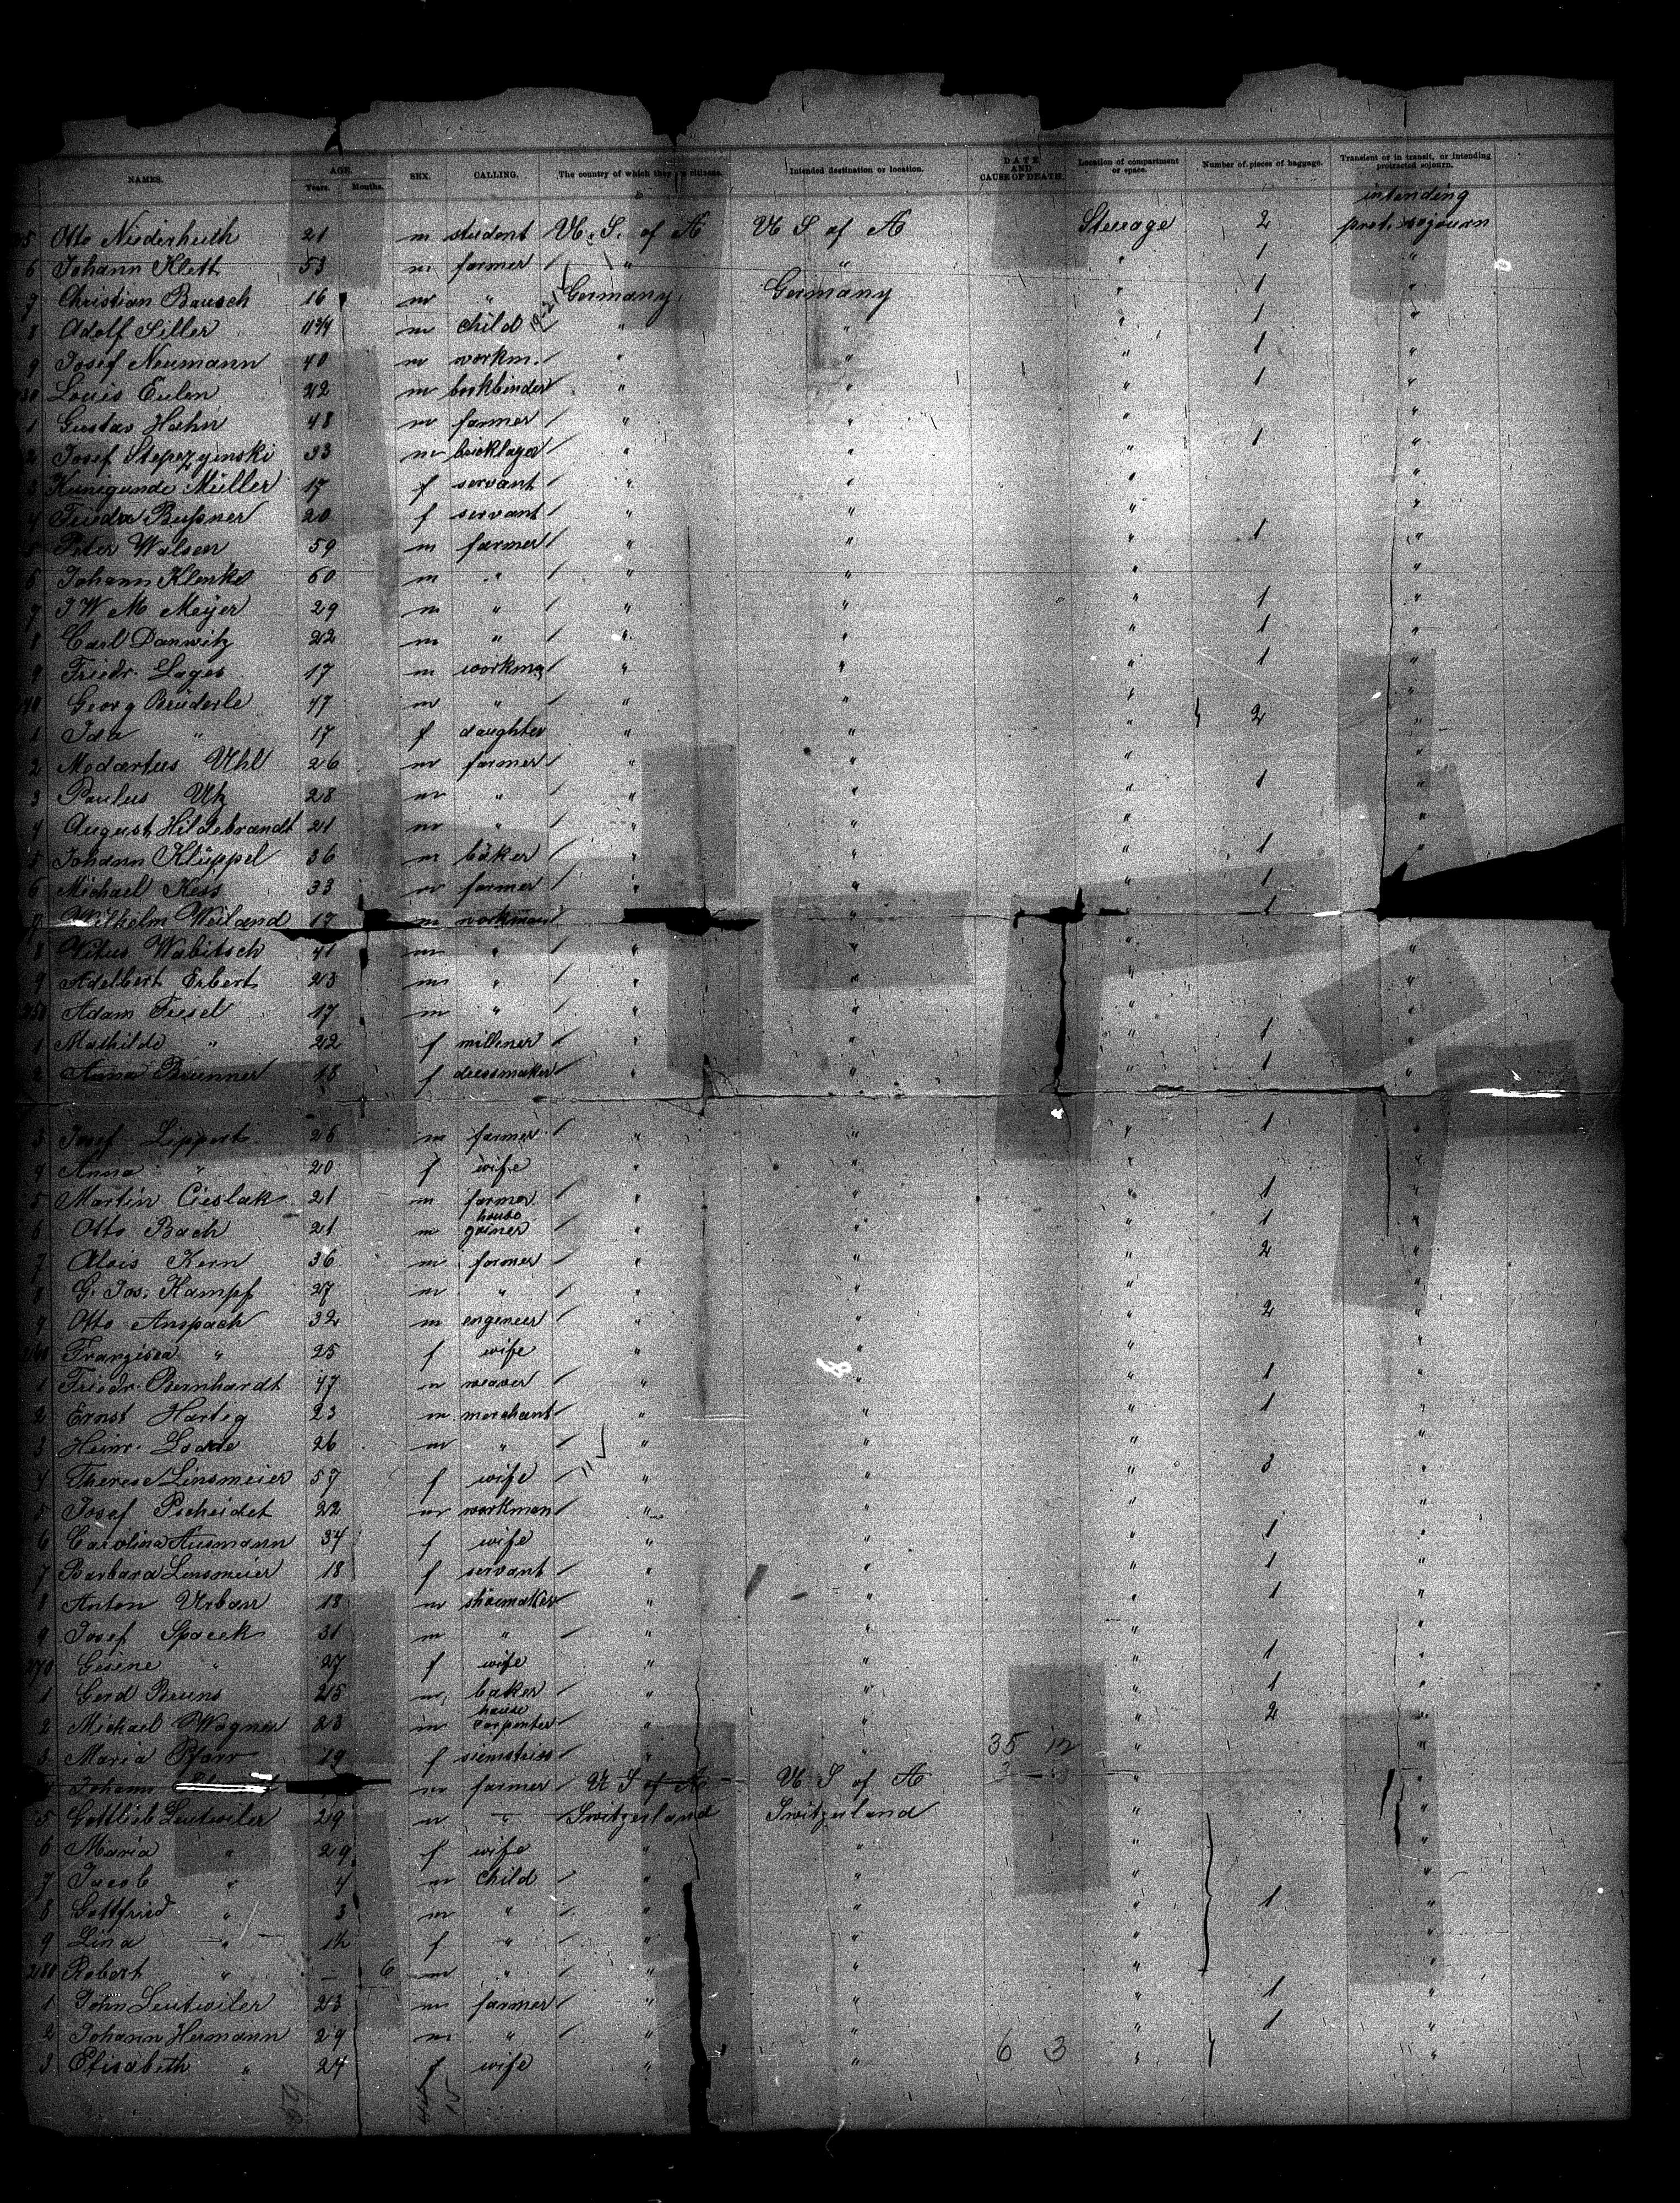 NAMES. AGE. SEX. CALLING. The country of which they are citizens. Intended destination or location. DATE AND CAUSE OF DEATH. Location of compartment or space. Number of pieces of baggage. Transient or in transit, or intending protracted sojourn.
Years. Months.
intending
5 Otto Niederhuth 21 m student U. S. of A U S of A Steerage 2 prot. sojourn
6 Johann Klett 53 m farmer " " " 1 "
7 Christian Bausch 16 m " Germany Germany " 1 "
8 Adolf Siller 11 3/4 m child " " " 1 "
9 Josef Neumann 40 m workm. " " " 1 "
30 Louis Eulen 22 m bookbinder " " " 1 "
1 Gustav Hahn 48 m farmer " " " "
2 Josef Stepezynski 33 m bricklayer " " " 1 "
3 Kunigunde Müller 17 f servant " " " "
4 Frieda Bußner 20 f servant " " " "
5 Peter Walser 59 m farmer " " " 1 "
6 Johann Klenke 60 m " " " " "
7 J W M Meyer 29 m " " " " 1 "
8 Carl Danwitz 22 m " " " " 1 "
9 Friedr. Lages 17 m workmg " " " 1 "
40 Georg Brüderle 47 m " " " " 2 "
1 Ida " 17 f daughter " " " "
2 Modartus Uhl 26 m farmer " " " "
3 Paulus Utz 28 m " " " " 1 "
4 August Hildebrandt 21 m " " " " "
5 Johann Klüppel 36 m bäker " " " 1 "
6 Michael Kess 33 m farmer " " " 1
7 Wilhelm Weiland 17 m workman " " 1
8 Vitus Wabitsch 41 m " " " " "
9 Adelbert Erbert 23 m " " " " "
250 Adam Fiesel 17 m " " " " "
1 Mathilde " 22 f milliner " " " 1 "
2 Anna Brunner 18 f dressmaker " " " 1 "
3 Josef Lippert 26 m farmer " " " 1 "
4 Anna " 20 f wife " " " "
5 Martin Cieslak 21 m farmer " " " 1 "
house
6 Otto Bach 21 m goiner " " " 1 "
7 Alois Kern 36 m farmer " " " 2 "
8 G. Jos. Kampf 27 m " " " " "
9 Otto Anspach 32 m engineer " " " 2 "
260 Franzisca " 25 f wife " " " "
1 Friedr. Bernhardt 47 m weaver " " " 1 "
2 Ernst Hartig 23 m merchant " " " 1 "
3 Heinr. 26 m " " " " "
4 Therese Linsmeier 57 f wife " " " 3 "
5 Josef Pscheidet 22 m workman " " " "
6 Carolina Ausmann 34 f wife " " " 1 "
7 Barbara Linsmeier 18 f servant " " " 1 "
8 Anton Urban 18 m shoemaker " " " 1 "
9 Josef Spacek 31 m " " " " "
270 Gesine " 27 f wife " " " 1 "
1 Gerd Bruns 25 m baker " " " 1 "
house
2 Michael Wagner 23 m carpenter " " " 2 "
3 Maria Pfarr 19 f siemstriss " " 35 12 " "
Johann m farmer U S of A U S of A 3 "
5 Gottlieb Leutwiler 29 m " Switzerland Switzerland " "
6 Maria " 29 f wife " " " "
7 Jacob " 4 m child " " " "
8 Gottfried " 3 m " " " " 1 "
9 Lina " 1½ f " " " " "
280 Robert " – 6 m " " " " "
1 John Leutwiler 23 m farmer " " " 1 "
2 Johann Hermann 29 m " " " " 1 "
3 Elisabeth " 24 f wife " " 6 3 " "
59 44 15